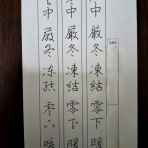 中厳冬凍結零下暖
中厳冬凍結零下暖
中厳冬凍結零下暖